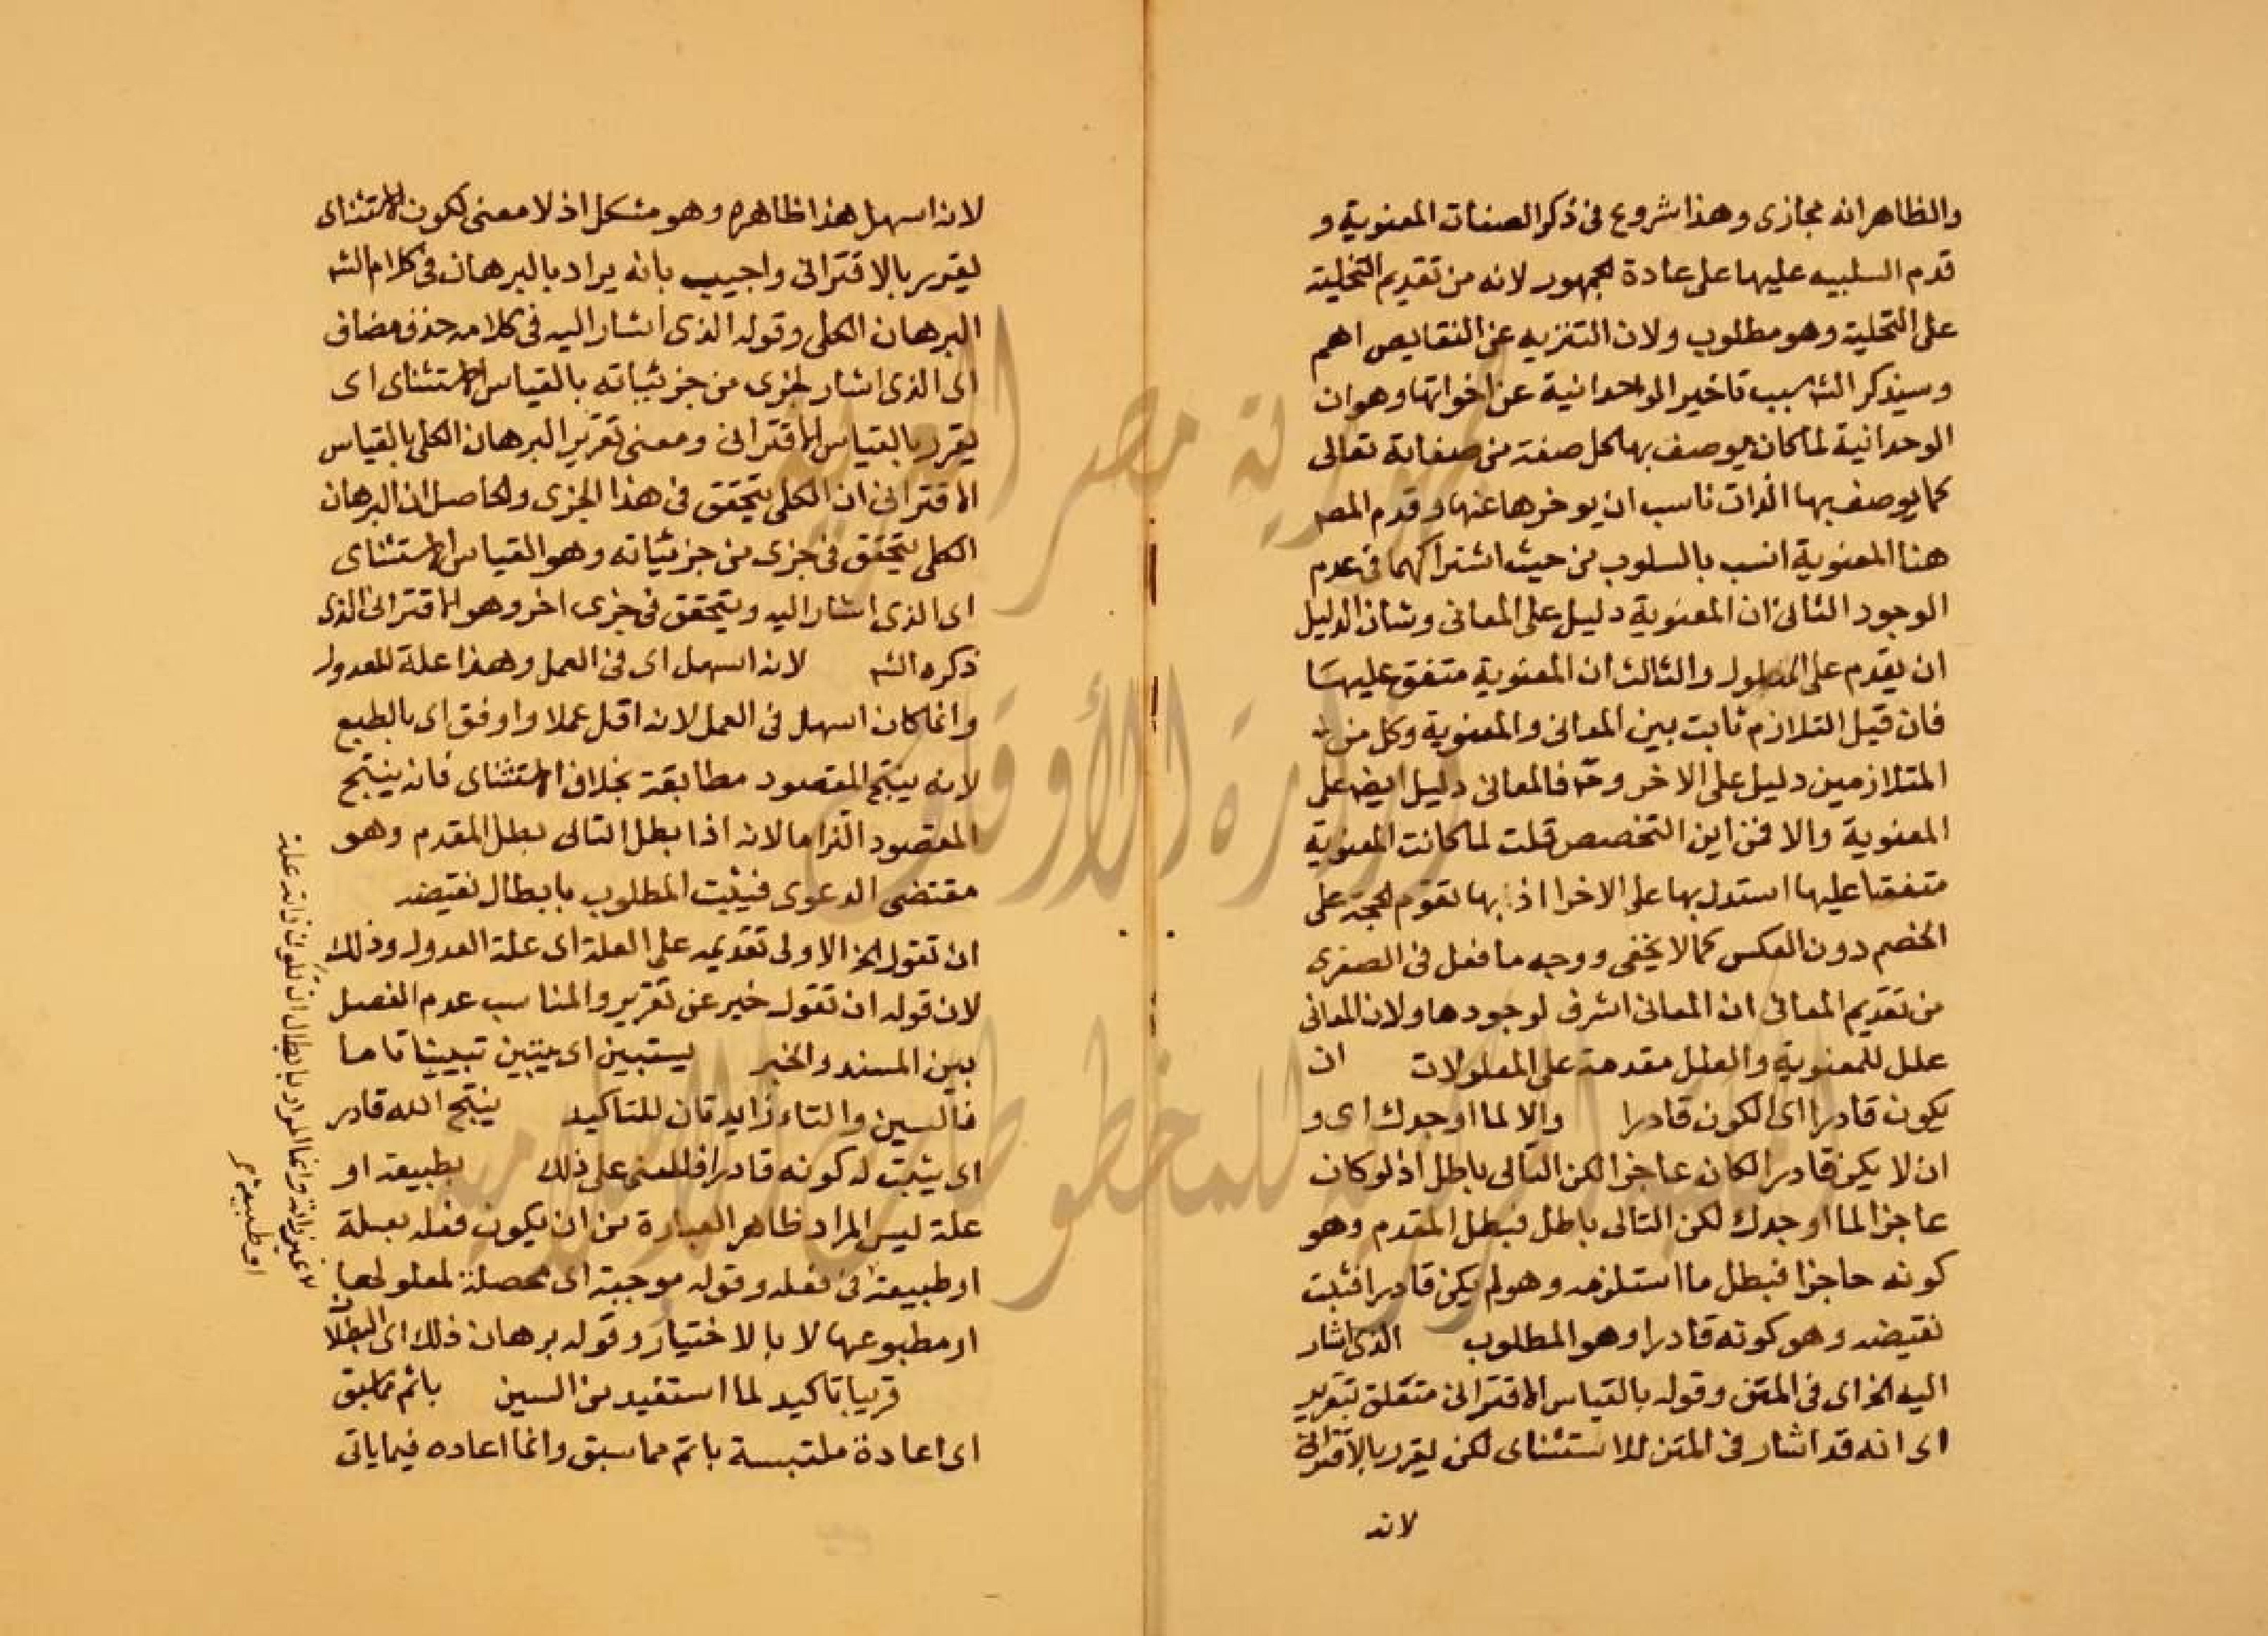 والظاهر انه مجازى وهذا شروع فى ذكر الصفات المعنوية و
قدم السلبيه عليها على عادة الجمهور لانه من تقديم التخلية
على التحلية وهو مطلوب ولان التنزيه عن النقايص اهم
وسيذكر الشه سبب تاخير الواحدانية عن اخواتها وهو ان
الوحدانية لما كان يوصف بها كل صفة من صفاته تعالى
كما يوصف بها الذات ناسب ان يوخرها عنها وقدم المصه
هنا المعنوية انسب بالسلوب من حيث اشتراكهما فى عدم
الوجود الثانى ان المعنوية دليل على المعانى وشان الدليل
ان يقدم على المدلول والثالث ان المعنوية متفق عليها
فان قيل التلازم ثابت بين المعانى والمعنوية وكل من
المتلازمين دليل على الاخر وحه فالمعانى دليل ايضه على
المعنوية والا فمن اين التخصص قلت لما كانت المعنوية
متفقا عليها استدل بها على الاخرا اذ بها تقوم الحجة على
الخصم دون العكس كما لا يخفى ووجه ما فعل فى الصغرى
من تقديم المعانى ان المعانى اشرف لوجودها ولان المعانى
علل للمعنوية والعلل مقدمة على المعلولات ان
يكون قادرا اى الكون قادرا والا لما اوجدك اى و
ان لا يكن قادرا لكان عاجزا لكن التالى باطل اذ لو كان
عاجزا لما اوجدك لكن التالى باطل فبطل المقدم وهو
كونه عاجزا فبطل ما استلزمه وهو لم يكن قادرا فثبت
نقيضه وهو كونه قادرا وهو المطلوب الذى اشار
اليه الخ اى فى المتن وقوله بالقياس الاقترانى متعلق بتقرير
اى انه قد اشار فى المتن للاستثناى لكن يقرر بالاقترانى
لانه
لانه اسهل هذا ظاهره وهو مشكل اذ لا معنى لكون الاستثناى
يقرر بالاقترانى واجيب بانه يراد بالبرهان فى كلام الشه
البرهان الكلى وقوله الذى اشار اليه فى كلامه حذف مضاف
اى الذى اشار لجزى من جزئياته بالقياس الاستثناى اى
يقرر بالقياس الاقترانى ومعنى تقرير البرهان الكلى بالقياس
الاقترانى ان الكلى يتحقق فى هذا الجزى والحاصل ان البرهان
الكلى يتحقق فى جزى من جزئياته وهو القياس الاستثناى
اى الذى اشار اليه ويتحقق فى جزى اخر وهو الاقترانى الذى
ذكره الشه لانه اسهل اى فى العمل وهذا علة للعدول
وانما كان اسهل فى العمل لانه اقل عملا واوفق اى بالطبع
لانه ينتج المقصود مطابقة بخلاف الاستثناى فانه ينتج
المقصود التزاما لانه اذا بطل التالى بطل المقدم وهو
مقتضى الدعوى فيثبت المطلوب بابطال نقيضه
ان تقول الخ الاولى تقديمه على العلة اى علة العدول وذلك
لان قوله ان تقول خبر عن تقرير والمناسب عدم الفصل
بين المسند والخبر يستبين اى يتبين تبيينا تاما
فالسين والتاء زايدتان للتاكيد ينتج الله قادر
اى يثبت له كونه قادرا فالمعنى على ذلك بطبيعة او
علة ليس المراد ظاهر العبارة من ان يكون فعله بعلة
او طبيعة فى فعله وقوله موجبة اى محصلة لمعلولها
او مطبوعها لا بالاختيار وقوله برهان ذلك اى البطلان
قريبا تاكيد لما استفيد من السين باتم مما سبق
اى اعادة ملتبسة باتم مما سبق وانما اعاده فيما ياتى
لا غير ذاته وانما المراد بابطال ان تكون ذاته علة
او طبيعة